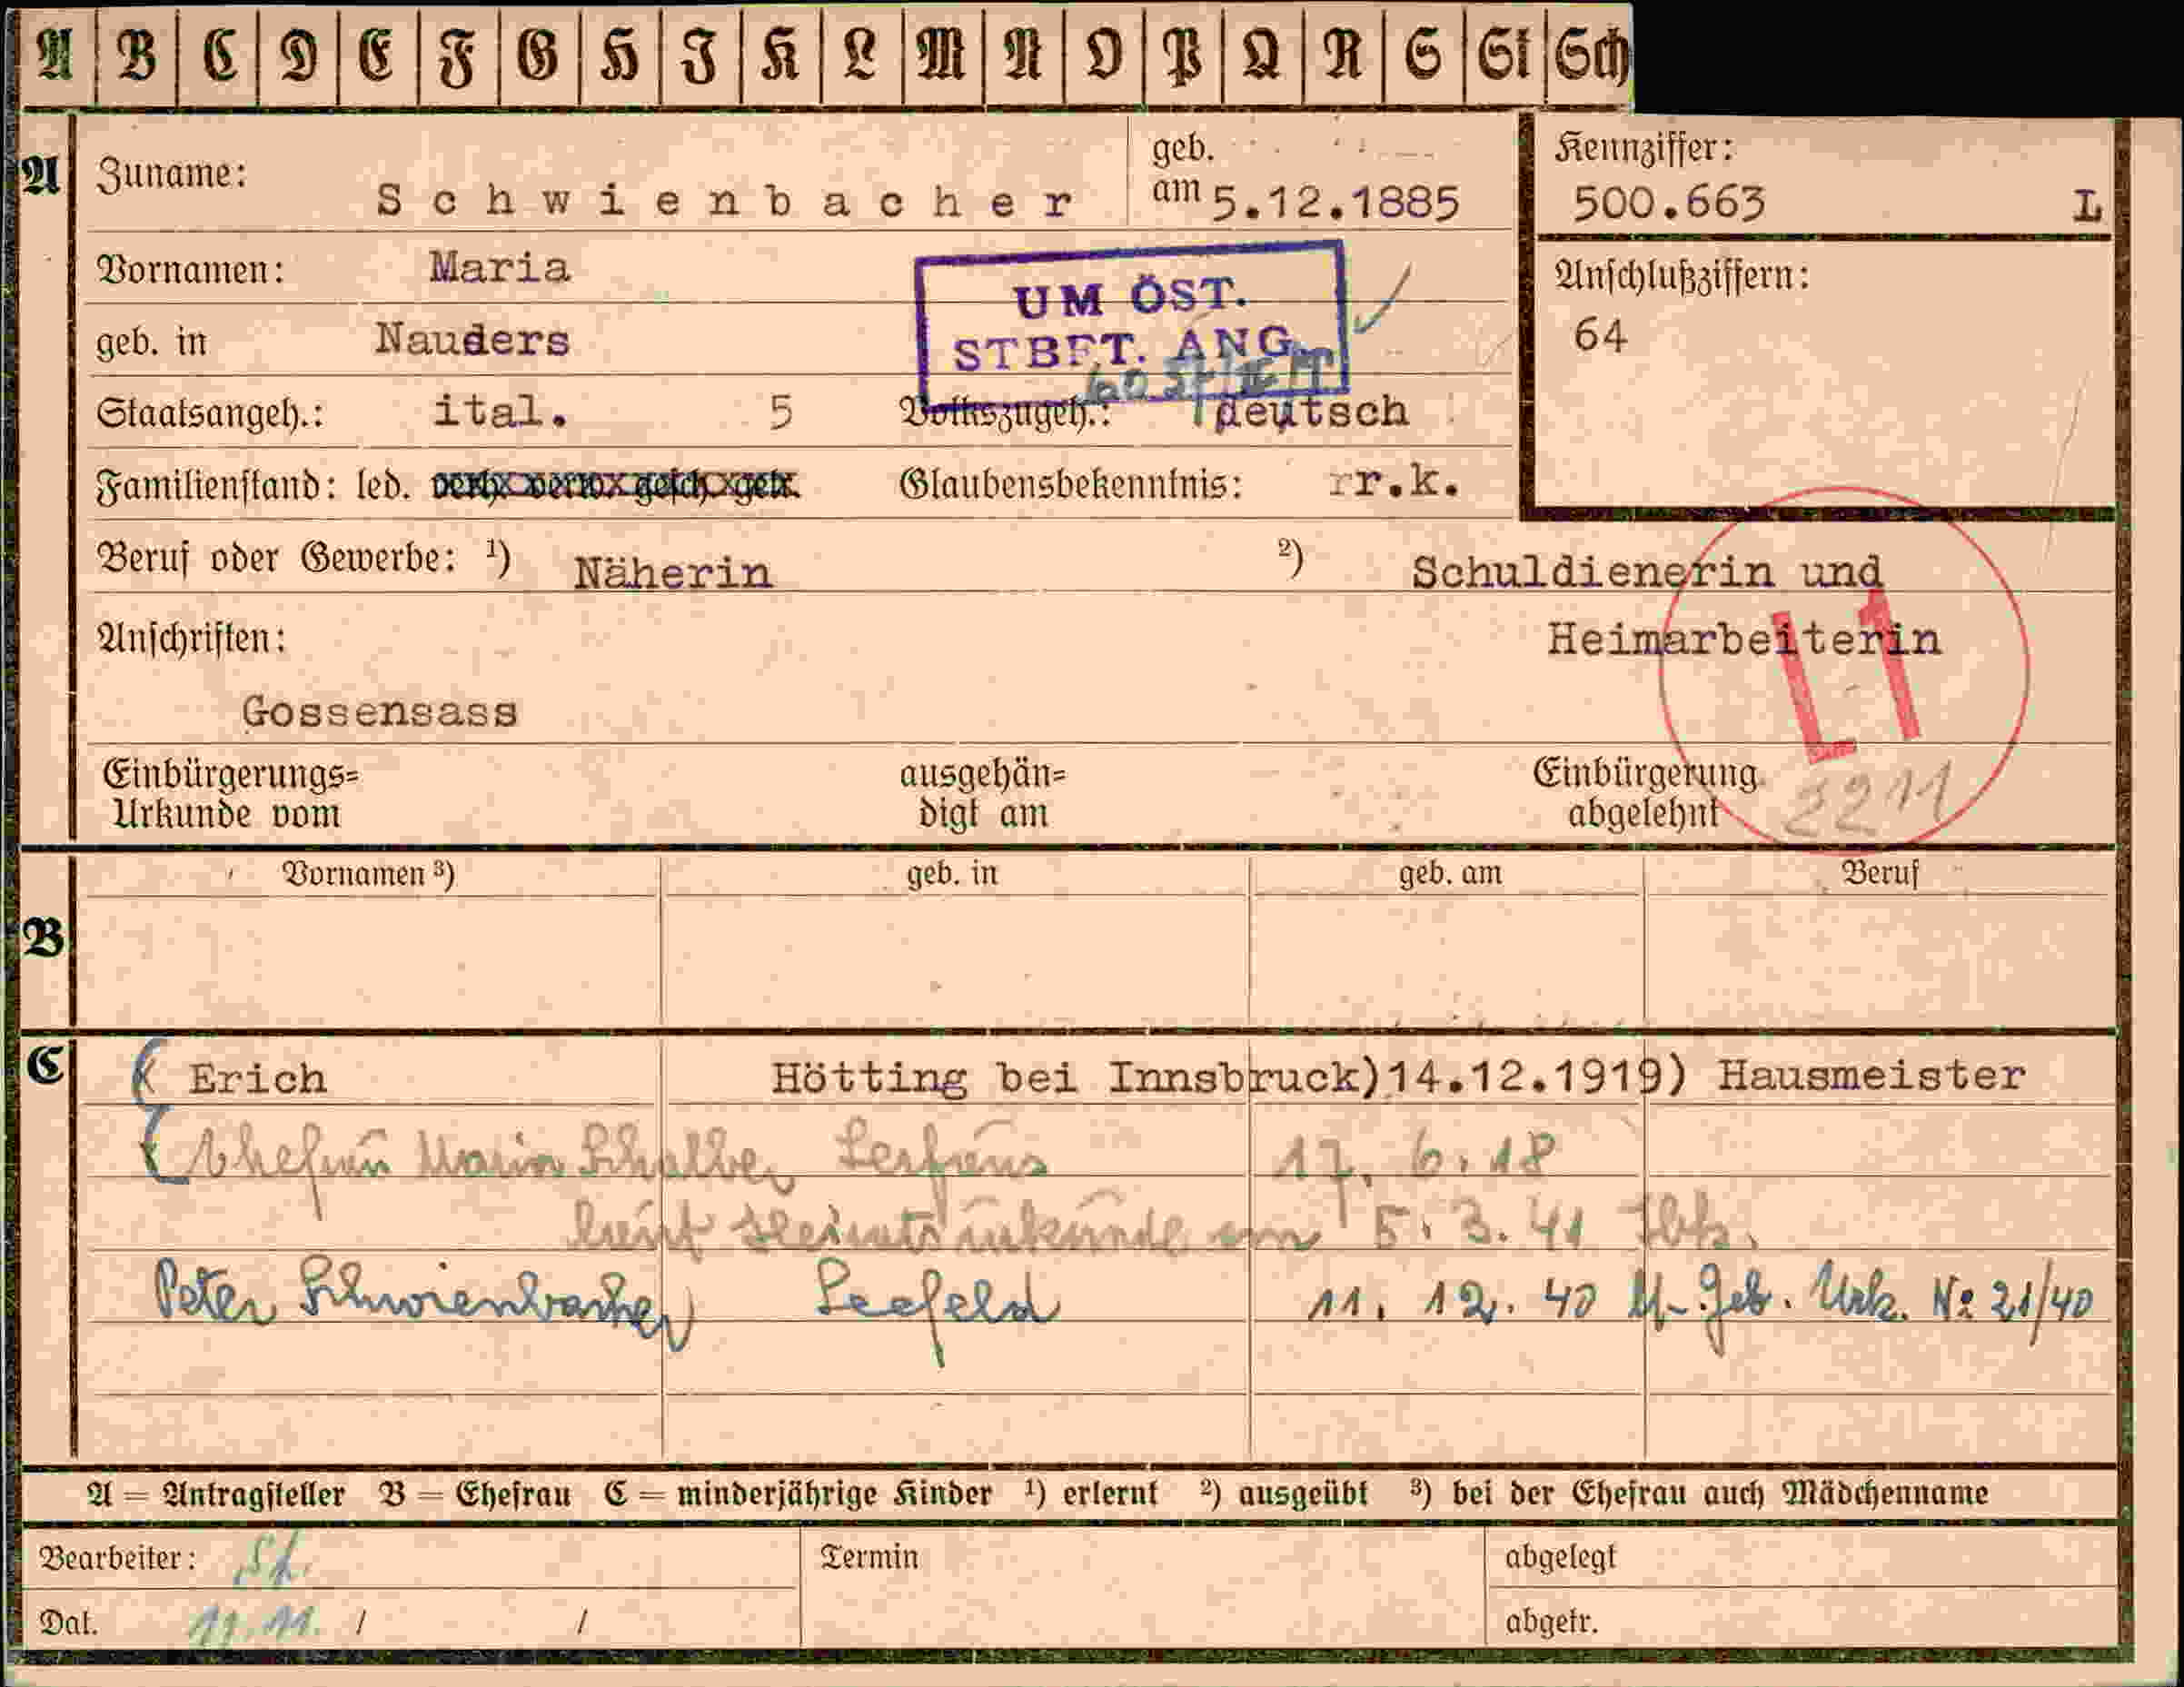 A B C D E F G H J K L M N O P Q R S St Sch
A
Zuname: Schwienbacher
geb. am 5.12.1885
Kennziffer:
500.663 L
Vornamen: Maria
UM ÖST.
STBFT. ANG.
Anschlußziffern:
64
geb. in Nauders
Staatsangeh.: ital. 5 Volkszugeh.: deutsch
Familienstand: led. verh. verw. gesch. getr. Glaubensbekenntnis: r.k.
Beruf oder Gewerbe: ¹) Näherin ²) Schuldienerin und
Heimarbeiterin
Anschriften:
L1
Gossensass
Einbürgerungs=
Urkunde vom
ausgehän=
digt am
Einbürgerung
abgelehnt
2211
Vornamen ³) geb. in geb. am Beruf
B
C
Erich Hötting bei Innsbruck)14.12.1919) Hausmeister
Ehefrau Maria Serfaus 17. 6. 18
laut Heiratsurkunde am 5. 3. 41 Ibk.
Peter Schwienbacher Seefeld 11. 12. 40 Geb. Urk. Nº 21/40
A = Antragsteller B = Ehefrau C = minderjährige Kinder ¹) erlernt ²) ausgeübt ³) bei der Ehefrau auch Mädchenname
Bearbeiter:
Termin
abgelegt
Dat. 11.11. / /
abgetr.